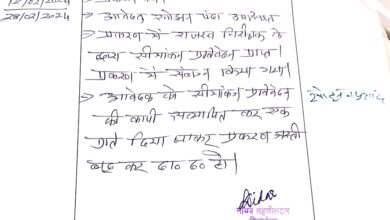 12/02/2024
28/02/2024
आवेदक
उपस्थित
प्रकरण में राजस्व निरीक्षक के
द्वारा सीमांकन प्रतिवेदन प्राप्त।
प्रकरण में संलग्न किया गया।
→ आवेदक को सीमांकन प्रतिवेदन
की कापी सत्यापित कर एक
प्रति दिया जाकर प्रकरण नस्ती
बद्ध कर दा० द० हो।
नायब तहसीलदार